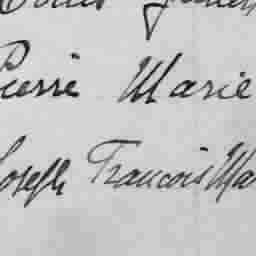 Pierre Marie
Joseph Francois Ma